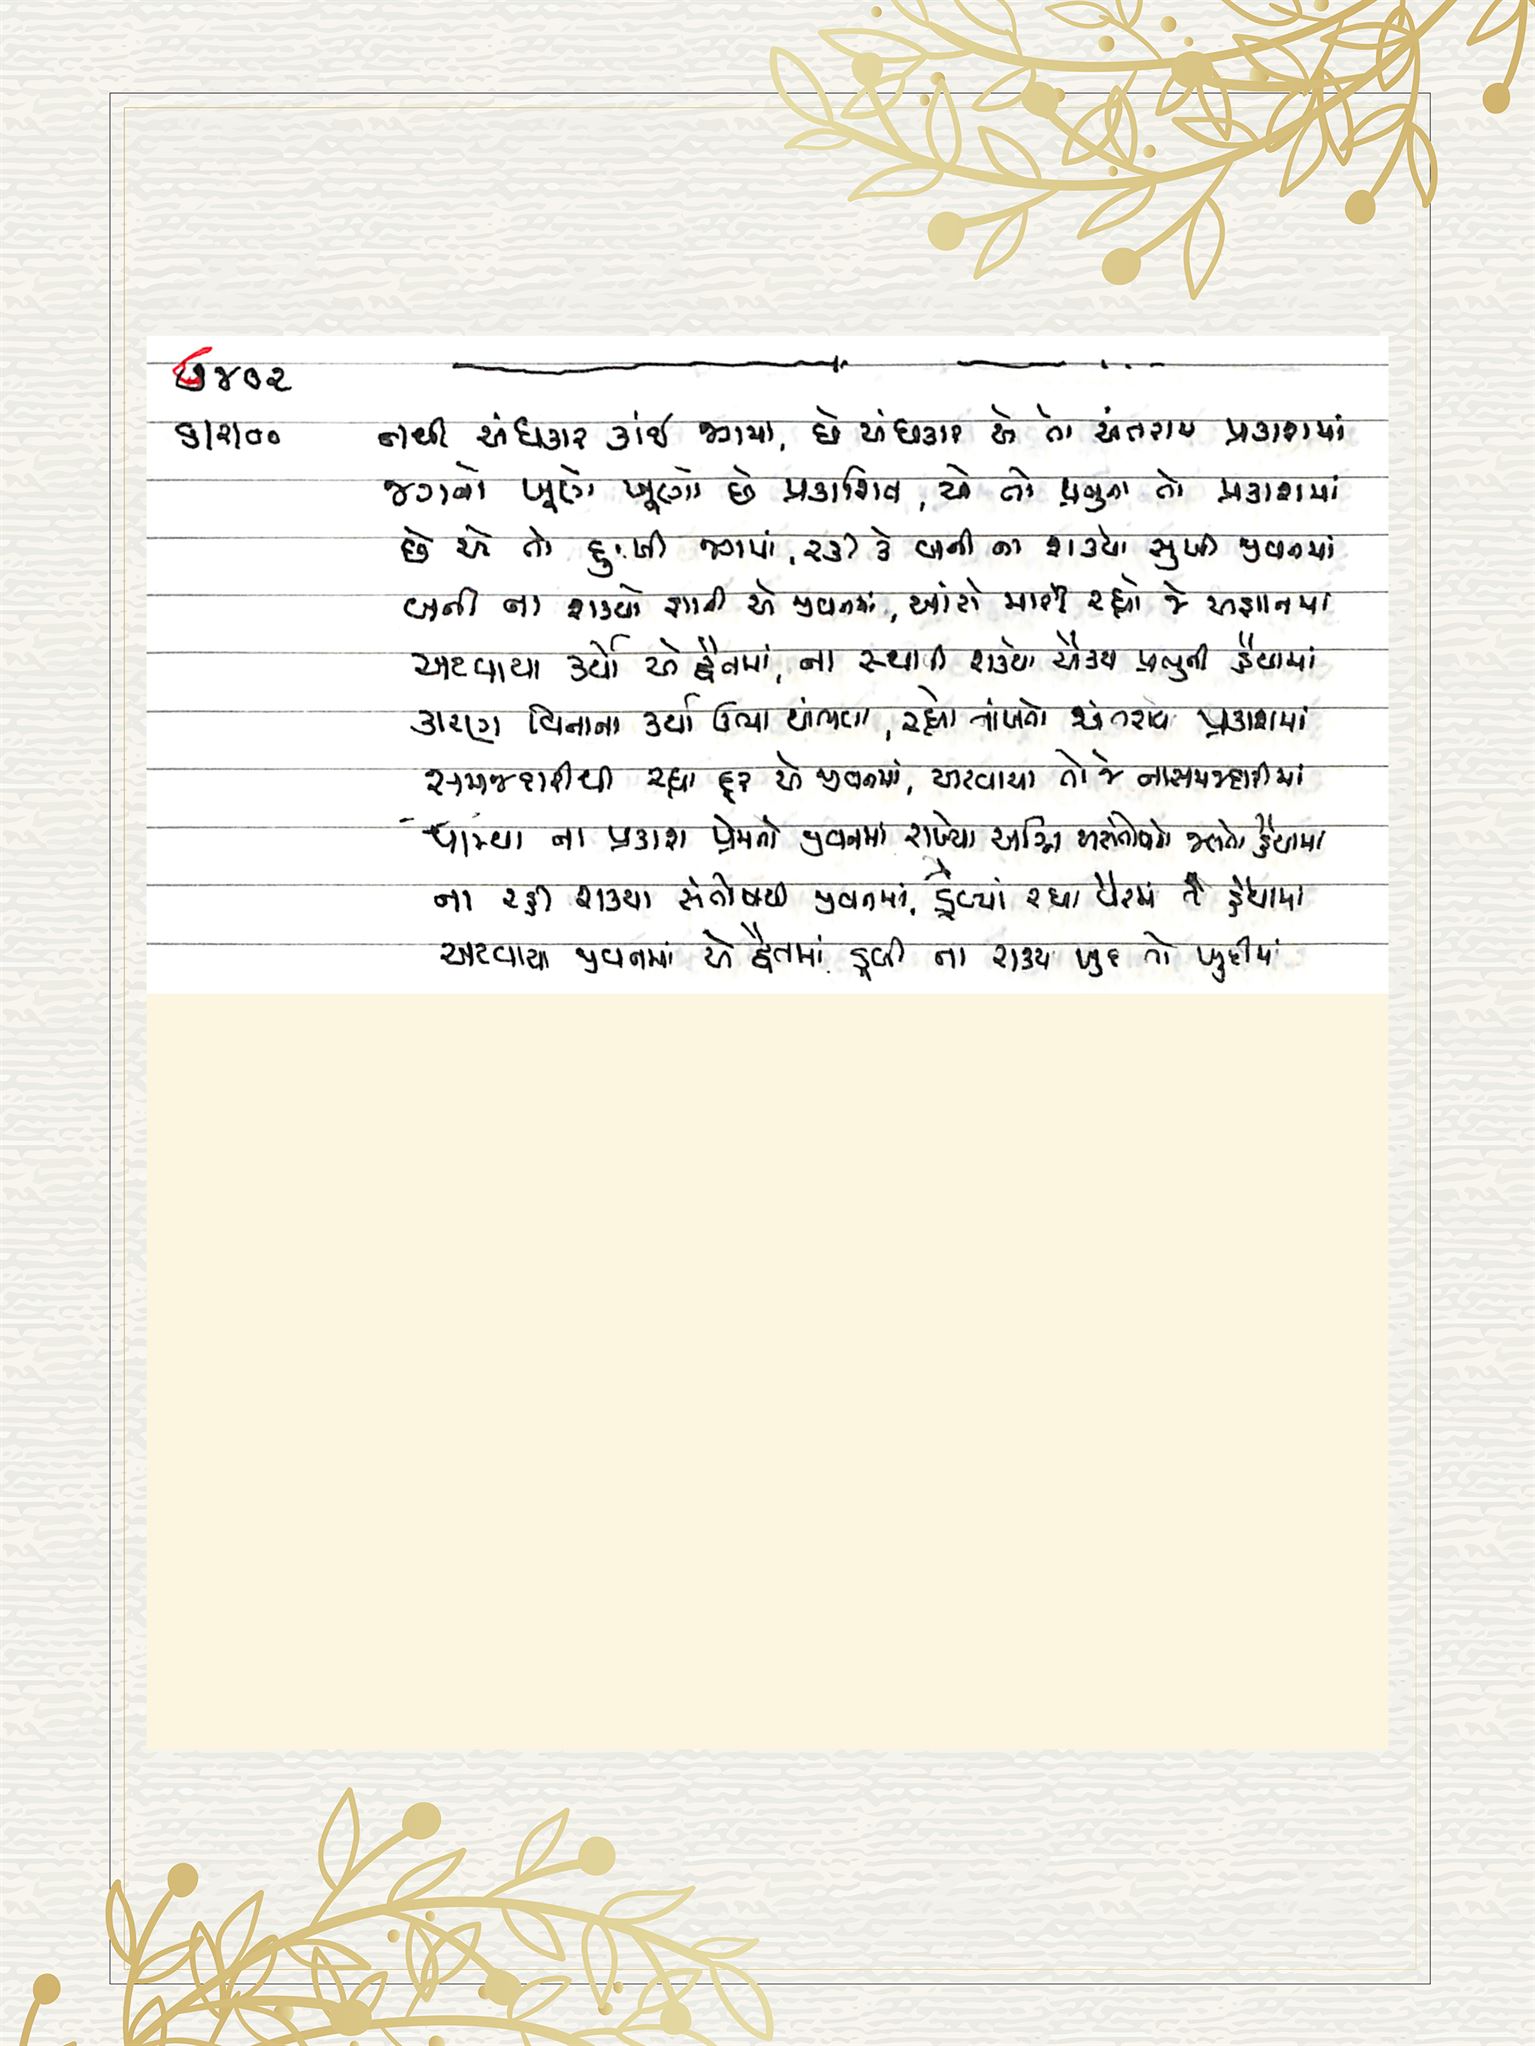 ૭૪૦૨
૬/૨/૦૦ નથી અંધકાર કાંઈ જગમાં, છે અંધકાર એ તો અંતરાય પ્રકાશમાં
જગનો ખૂણે ખૂણો છે પ્રકાશિત, એ તો પ્રભુના તો પ્રકાશમાં
છે એ તો દુઃખી જગમાં, રડી કે બની ના શક્યો સુખી જીવનમાં
બની ના શક્યો જ્ઞાની એ જીવનમાં, આંટો મારી રહ્યો જે અજ્ઞાનમાં
અટવાયા કર્યો એ દ્વૈતમાં, ના સ્થાપી શક્યો ઐક્ય પ્રભુની હૈયામાં
કારણ વિનાના કર્યા ઉભા થાંભલા, રહ્યો નાંખતો અંતરાય પ્રકાશમાં
સમજદારીથી રહ્યા દૂર એ જીવનમાં, અટવાયા તો જે નાસમજદારીમાં
પામ્યા ના પ્રકાશ પ્રેમનો જીવનમાં રાખ્યા અગ્નિ અસંતોષનો જલતો હૈયામાં
ના રહી શક્યા સંતોષથી જીવનમાં, ડૂબ્યાં રહ્યા વૈરમાં જે હૈયામાં
અટવાયા જીવનમાં એ દ્વૈતમાં ડૂબી ના શક્ય ખુદ તો ખુદીમાં